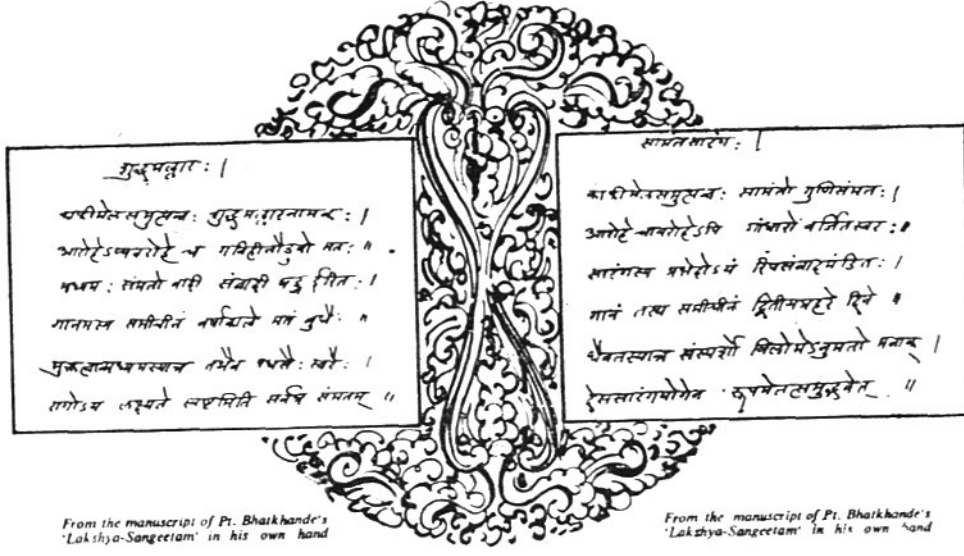 शुद्धमल्लारः |
समुत्पन्नः शुद्धमल्लारनामकः |
आरोहेऽप्यवरोहे च गनिहीनौडुवो मतः ॥
मध्यमः संमतो वादी संवादी षड्ज ईरितः |
गानमस्य समीचीनं वर्षाकाले मतं बुधैः ॥
तथैव स्वरैः |
रागोऽयं लक्ष्यते स्पष्टमिति सर्वत्र संमतम् ॥
From the manuscript of Pt. Bhatkhande's
'Lakshya-Sangeetam' in his own hand
सामंतसारंगः |
काफीमेलसमुत्पन्नः सामंतो गुणिसंमतः |
आरोहे चावरोहेऽपि गांधारो वर्जितस्वरः ॥
सारंगस्य प्रभेदोऽयं रिपसंवादमंडितः |
गानं तस्य समीचीनं द्वितीयप्रहरे दिने ॥
धैवतस्यात्र संस्पर्शो विलोमेऽनुमतो मनाक् |
देससारंगयोगेन रूपमेतत्समुद्भवेत् ॥
From the manuscript of Pt. Bhatkhande's
'Lakshya-Sangeetam' in his own hand